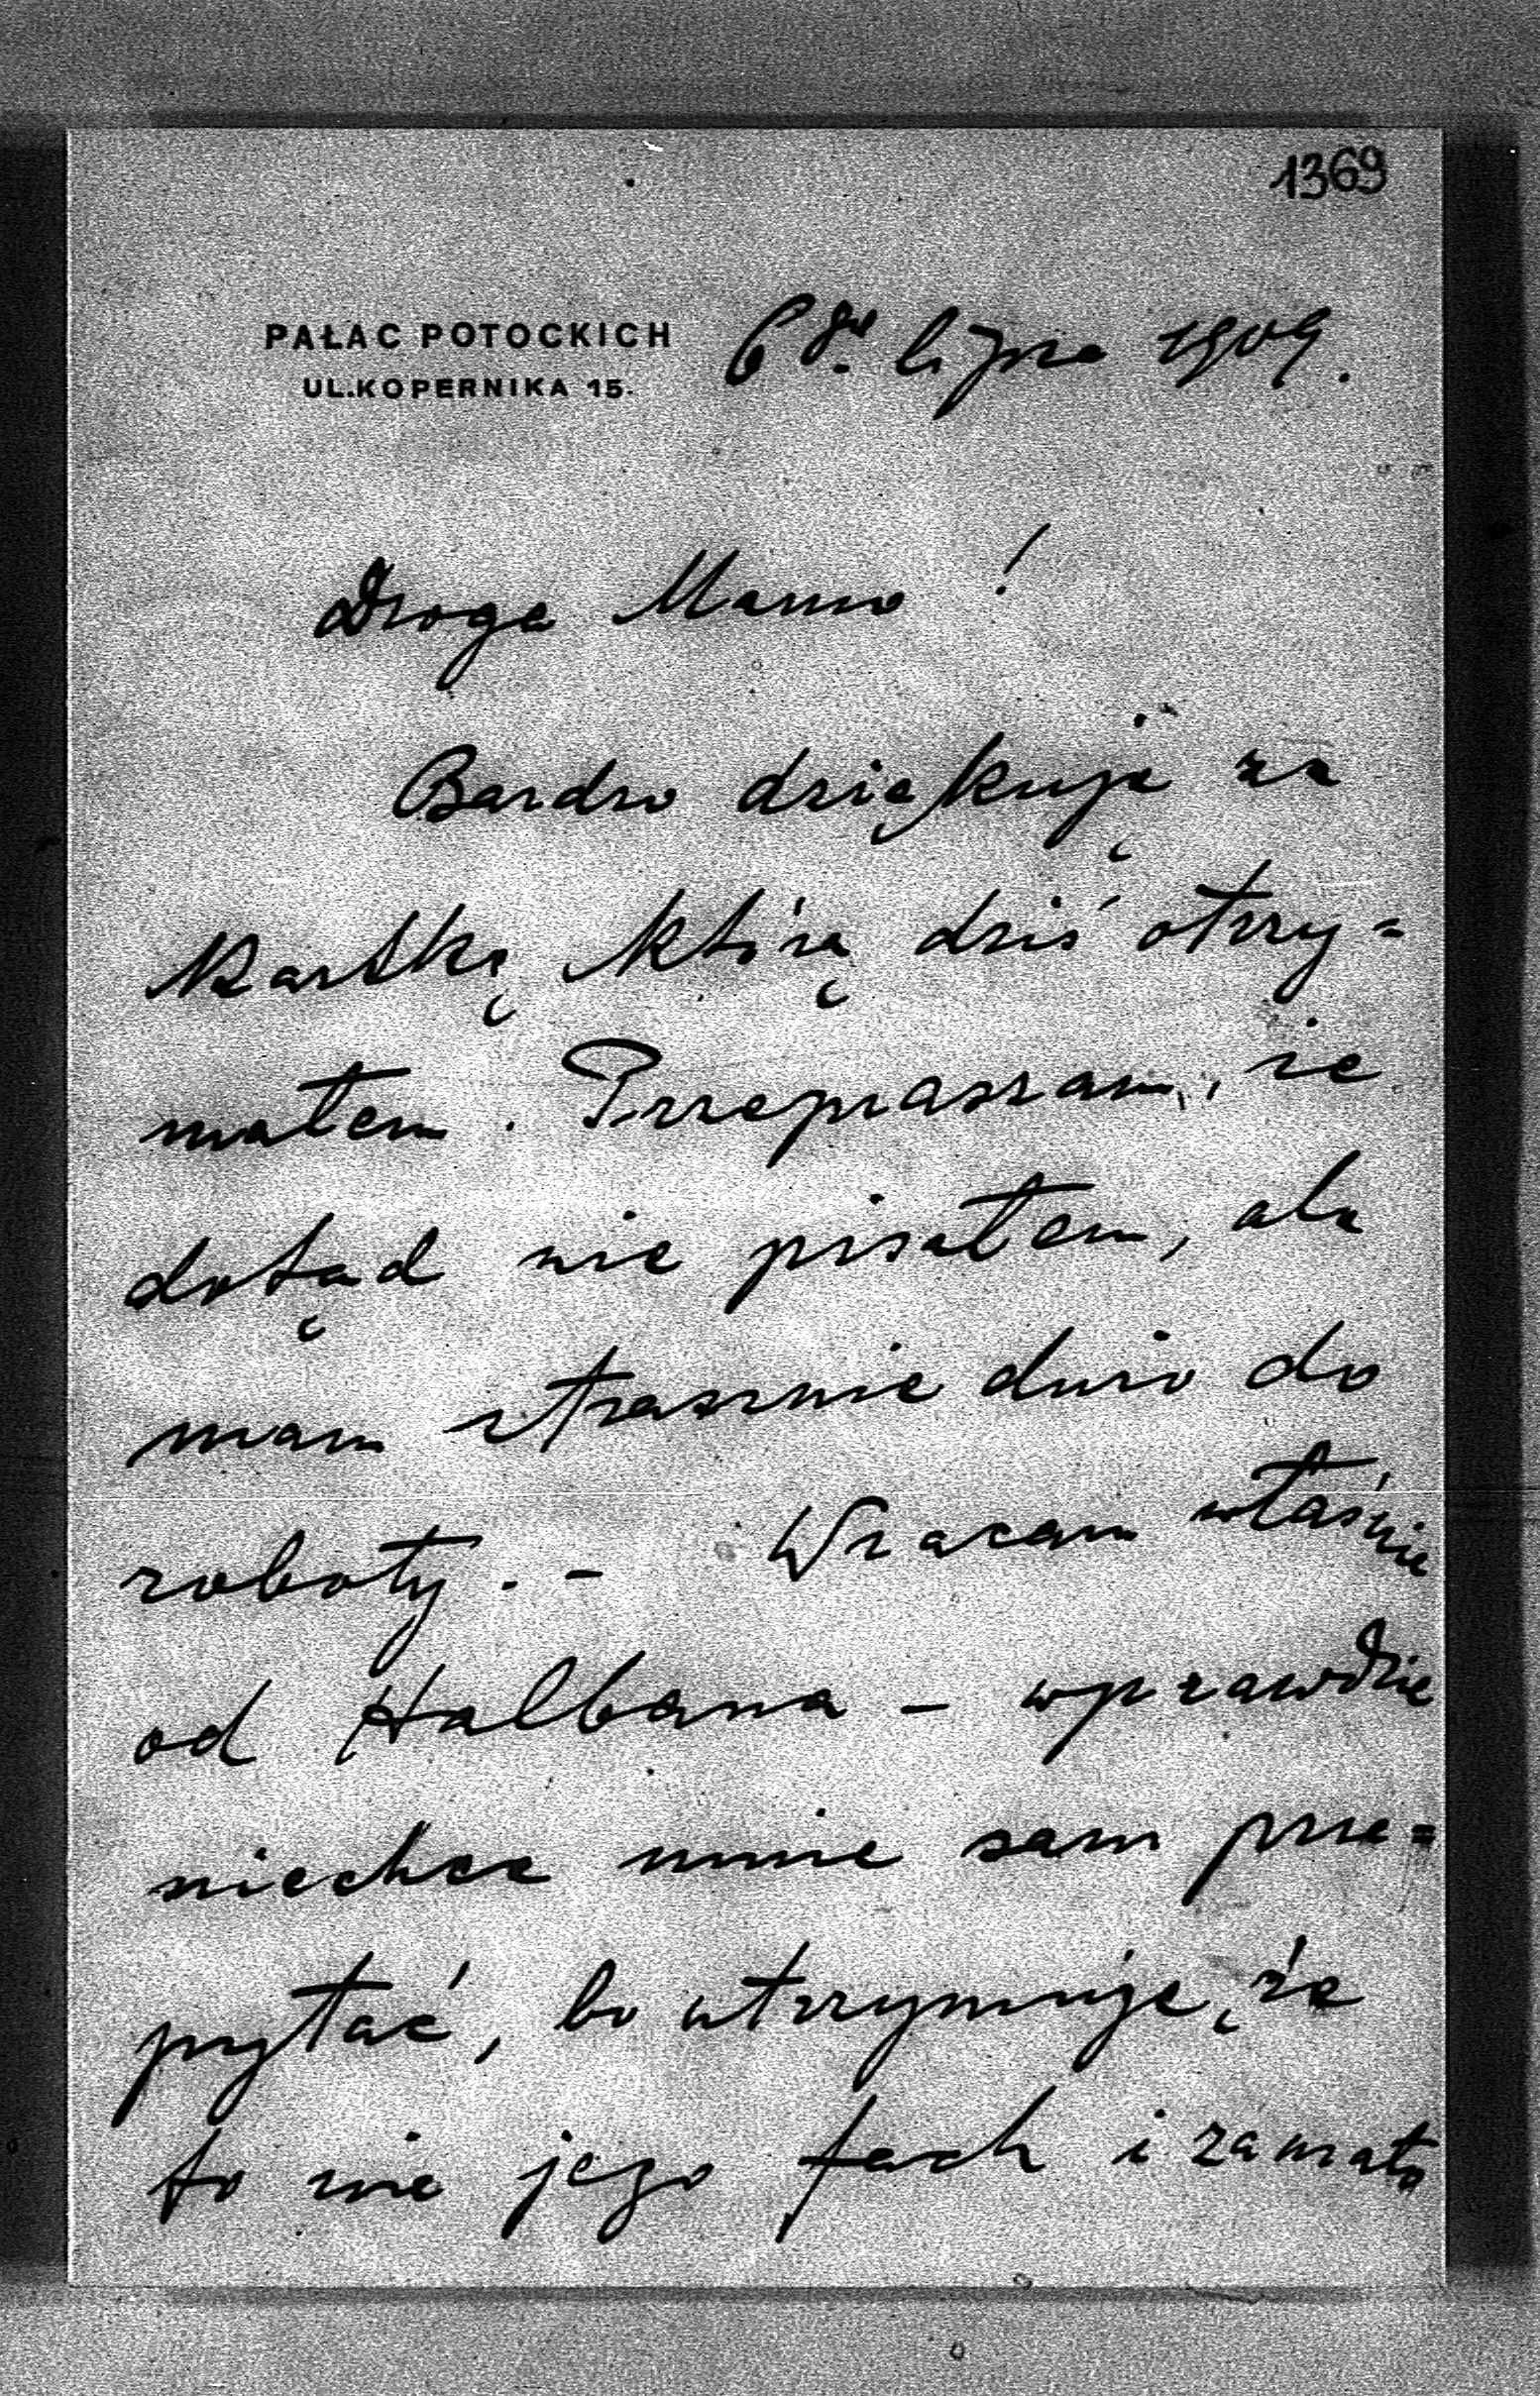 1369
PAŁAC POTOCKICH
UL.KOPERNIKA 15.
6go. lipca 1909.
Droga Mamo!
Bardzo dziękuję za
kartkę którą dziś otrzy=
małem. Przepraszam, że
dotąd nie pisałem, ale
mam strasznie dużo do
roboty. - Wracam właśnie
od Halbana - wprawdzie
niechce mnie sam prze=
pytać, bo utrzymuje, że
to nie jego fach i zamało